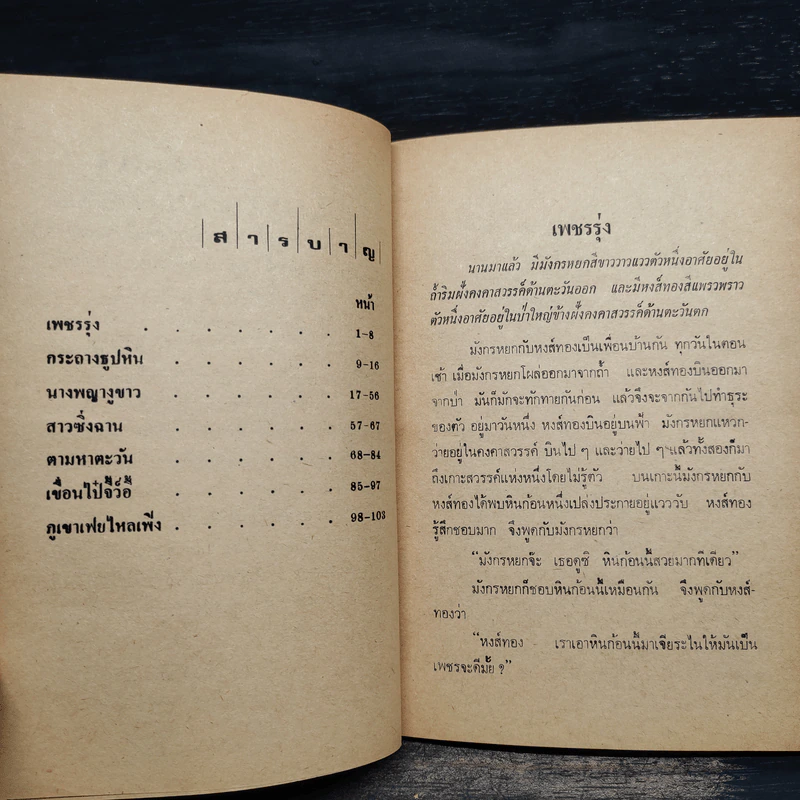 สารบาญ
หน้า
เพชรรุ่ง . . . . . . 1-8
กระถางธูปหิน . . . . . 9-16
นางพญางูขาว . . . . . 17-56
สาวซึ่งฉาน . . . . . 57-67
ตามหาตะวัน . . . . . 68-84
เขื่อนไป๋จี๊วอี้ . . . . . 85-97
ภูเขาเฟยไหลเฟิง . . . . . 98-103
เพชรรุ่ง
นานมาแล้ว มีมังกรหยกสีขาววาวแววตัวหนึ่งอาศัยอยู่ใน
ถ้ำริมฝั่งคงคาสวรรค์ด้านตะวันออก และมีหงส์ทองสีแพรวพราว
ตัวหนึ่งอาศัยอยู่ในป่าใหญ่ข้างฝั่งคงคาสวรรค์ด้านตะวันตก
มังกรหยกกับหงส์ทองเป็นเพื่อนบ้านกัน ทุกวันในตอน
เช้า เมื่อมังกรหยกโผล่ออกมาจากถ้ำ และหงส์ทองบินออกมา
จากป่า มันก็มักจะทักทายกันก่อน แล้วจึงจะจากกันไปทำธุระ
ของตัว อยู่มาวันหนึ่ง หงส์ทองบินอยู่บนฟ้า มังกรหยกแหวก-
ว่ายอยู่ในคงคาสวรรค์ บินไป ๆ และว่ายไป ๆ แล้วทั้งสองก็มา
ถึงเกาะสวรรค์แห่งหนึ่งโดยไม่รู้ตัว บนเกาะนี้มังกรหยกกับ
หงส์ทองได้พบหินก้อนหนึ่งเปล่งประกายอยู่แวววับ หงส์ทอง
รู้สึกชอบมาก จึงพูดกับมังกรหยกว่า
“มังกรหยกจ๊ะ เธอดูซิ หินก้อนนี้สวยมากทีเดียว”
มังกรหยกก็ชอบหินก้อนนี้เหมือนกัน จึงพูดกับหงส์-
ทองว่า
“หงส์ทอง เราเอาหินก้อนนี้มาเจียระไนให้มันเป็น
เพชรจะดีมั้ย ?”